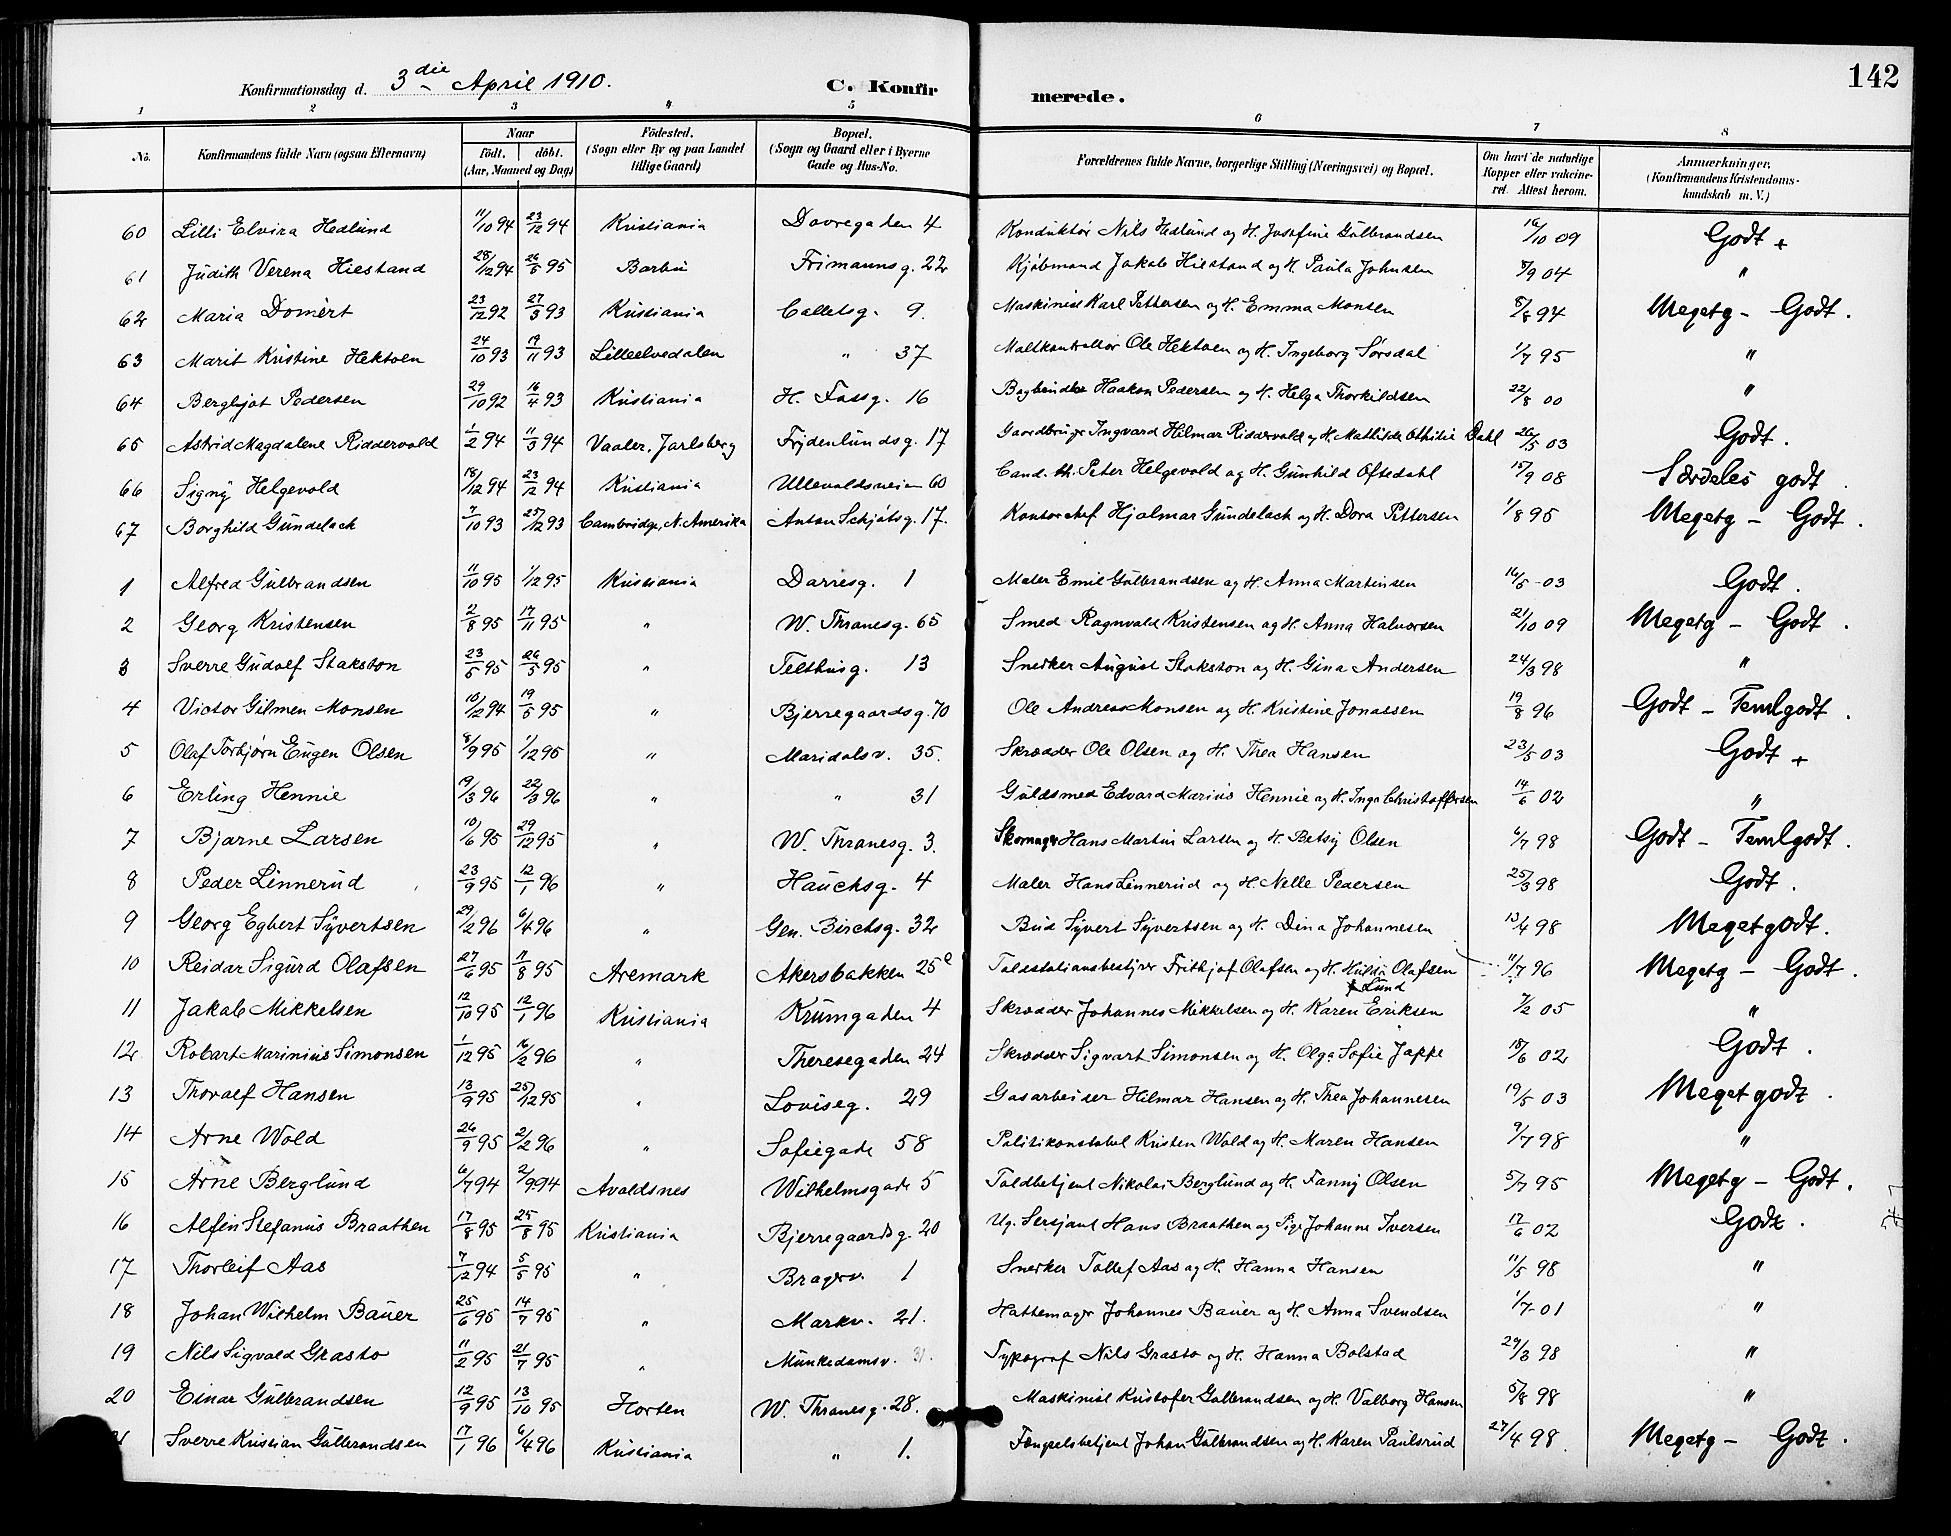 142
Konfirmationsdag d. 3die April 1910. C. Konfirmerede.
1 2 3 " 5 6 7 8
No. Konfirmandens fulde Navn (ogsaa Efternavn) Naar Födt. döbt. (Aar, Maaned og Dag) Födested. (Sogn eller By og paa Landet tillige Gaard) Bopæl. (Sogn og Gaard eller i Byerne Gade og Hus-No. Forældrenes fulde Navne, borgerlige Stilling (Næringsvei) og Bopæl. Om havt de naturlige Kopper eller vakcineret. Attest herom. Anmærkninger. (Konfirmandens Kristendomskundskab m. V.)
60 Lilli Elvira Hedlund 11/10 94 23/12 94 Kristiania Dovregaden 4 Konduktör Nils Hedlund og H. Josefine Gulbrandsen 16/10 09 Godt +
61 Judith Verena Hiestand 28/12 94 26/5 95 Barbu Frimannsg. 22 Kjøbmand Jakob Hiestand og H. Paula Johnsen 8/9 04 "
62 Maria Domért 23/12 92 27/3 93 Kristiania Calletsg. 9. Maskinist Karl Pettersen og H. Emma Monsen 8/8 94 Megetg - Godt.
63 Marit Kristine Hektoen 24/10 93 19/11 93 Lilleelvedalen " 37 Maltkontrollør Ole Hektoen og H. Ingeborg Sørsdal 1/7 95 "
64 Bergljot Pedersen 29/10 92 16/4 93 Kristiania H. Fossg. 16 Bogbinder Haakon Pedersen og H. Helga Thorkildsen 22/8 00 "
65 Astrid Magdalene Riddervold 1/2 94 11/3 94 Vaaler, Jarlsberg Frydenlundsg. 17 Gaardbruger Ingvard Hilmar Riddervold og H. Mathilde Othilie Dahl 26/5 03 Godt.
66 Signy Helgevold 18/12 94 23/12 94 Kristiania Ullevoldsveien 60 Cand. th. Peter Helgevold og H. Gunhild Oftedahl 15/9 08 Særdeles godt.
67 Borghild Gundelach 7/10 93 25/12 93 Cambridge, N. Amerika Anton Schjøtsg. 17. Kontorchef Hjalmar Gundelach og H. Dora Pettersen 1/8 95 Megetg - Godt.
1 Alfred Gulbrandsen 11/10 95 1/12 95 Kristiania Darresg. 1 Maler Emil Gulbrandsen og H. Anna Martinsen 16/5 03 Godt.
2 Georg Kristensen 2/8 95 17/11 95 " W. Thranesg. 65 Smed Ragnvald Kristensen og H. Anna Halvorsen 21/10 09 Megetg - Godt.
3 Sverre Gudolf Stakston 23/5 95 26/5 95 " Telthusg. 13 Snedker August Stakston og H. Gina Andersen 24/3 98 "
4 Victor Gilmen Monsen 10/12 94 19/5 95 " Bjerregaardsg. 70 Ole Andreas Monsen og H. Kristine Jonassen 19/8 96 Godt - Temlgodt.
5 Olaf Torbjørn Eugen Olsen 8/9 95 1/12 95 " Maridalsv. 35. Skrædder Ole Olsen og H. Thea Hansen 23/5 03 Godt +
6 Erling Hennie 19/3 96 22/3 96 " " 31 Guldsmed Edvard Marius Hennie og H. Inga Christoffersen 14/6 02 "
7 Bjarne Larsen 10/6 95 29/12 95 " W. Thranesg. 3. Skomager Hans Martin Larsen og H. Betsy Olsen 6/7 98 Godt - Temlgodt.
8 Peder Linnerud 23/9 95 12/1 96 " Hauchsg. 4 Maler Hans Linnerud og H. Nelle Pedersen 25/3 98 Godt.
9 Georg Egbert Syvertsen 29/2 96 6/4 96 " Gen. Birchsg. 32 Bud Syvert Syvertsen og H. Dina Johannesen 13/4 98 Megetgodt.
10 Reidar Sigurd Olafsen 27/6 95 11/8 95 Aremark Akersbakken 25e Toldstationsbestyrer Frithjof Olafsen og H. Hulda Olafsen f. Lund 11/7 96 Megetg - Godt.
11 Jakob Mikkelsen 12/10 95 12/1 96 Kristiania Krumgaden 4 Skrædder Johannes Mikkelsen og H. Karen Eriksen 7/2 05 "
12 Robart Marinius Simonsen 1/12 95 16/2 96 " Theresegaden 24 Skrædder Sigvart Simonsen og H. Olga Sofie Jappe 18/6 02 Godt.
13 Thoralf Hansen 13/9 95 25/12 95 " Loviseg. 29 Gasarbeider Hilmar Hansen og H. Thea Johannesen 19/5 03 Megetgodt.
14 Arne Wold 26/9 95 2/2 96 " Sofiegade 58 Politikonstabel Kristen Wold og H. Maren Hansen 9/7 98 "
15 Arne Berglund 6/7 94 2/9 94 Avaldsnes Wilhelmsgade 5 Toldbetjent Nikolai Berglund og H. Fanny Olsen 5/7 95 Megetg - Godt.
16 Alfin Stefanus Braathen 17/8 95 25/8 95 Kristiania Bjerregaardsg. 20 Ug. Sersjant Hans Braathen og Pige Johanne Iversen 17/6 02 Godt.
17 Thorleif Aas 7/12 94 5/5 95 " Bragerv. 1 Snedker Tollef Aas og H. Hanna Hansen 11/5 98 "
18 Johan Wilhelm Bauer 25/6 95 14/7 95 " Markv. 21. Hattemager Johannes Bauer og H. Anna Svendsen 1/7 01 "
19 Nils Sigvald Grasto 11/2 95 21/7 95 " Munkedamsv. 31. Typograf Nils Grasto og H. Hanna Bolstad 29/3 98 "
20 Einar Gulbrandsen 12/9 95 13/10 95 Horten W. Thranesg. 28. Maskinist Kristofer Gulbrandsen og H. Valborg Hansen 5/8 98 "
Sverre Kristian Gulbrandsen 17/1 96 6/4 96 Kristiania " 1. Fængselsbetjent Johan Gulbrandsen og H. Karen Paulsrud 27/4 98. Megetg - Godt.